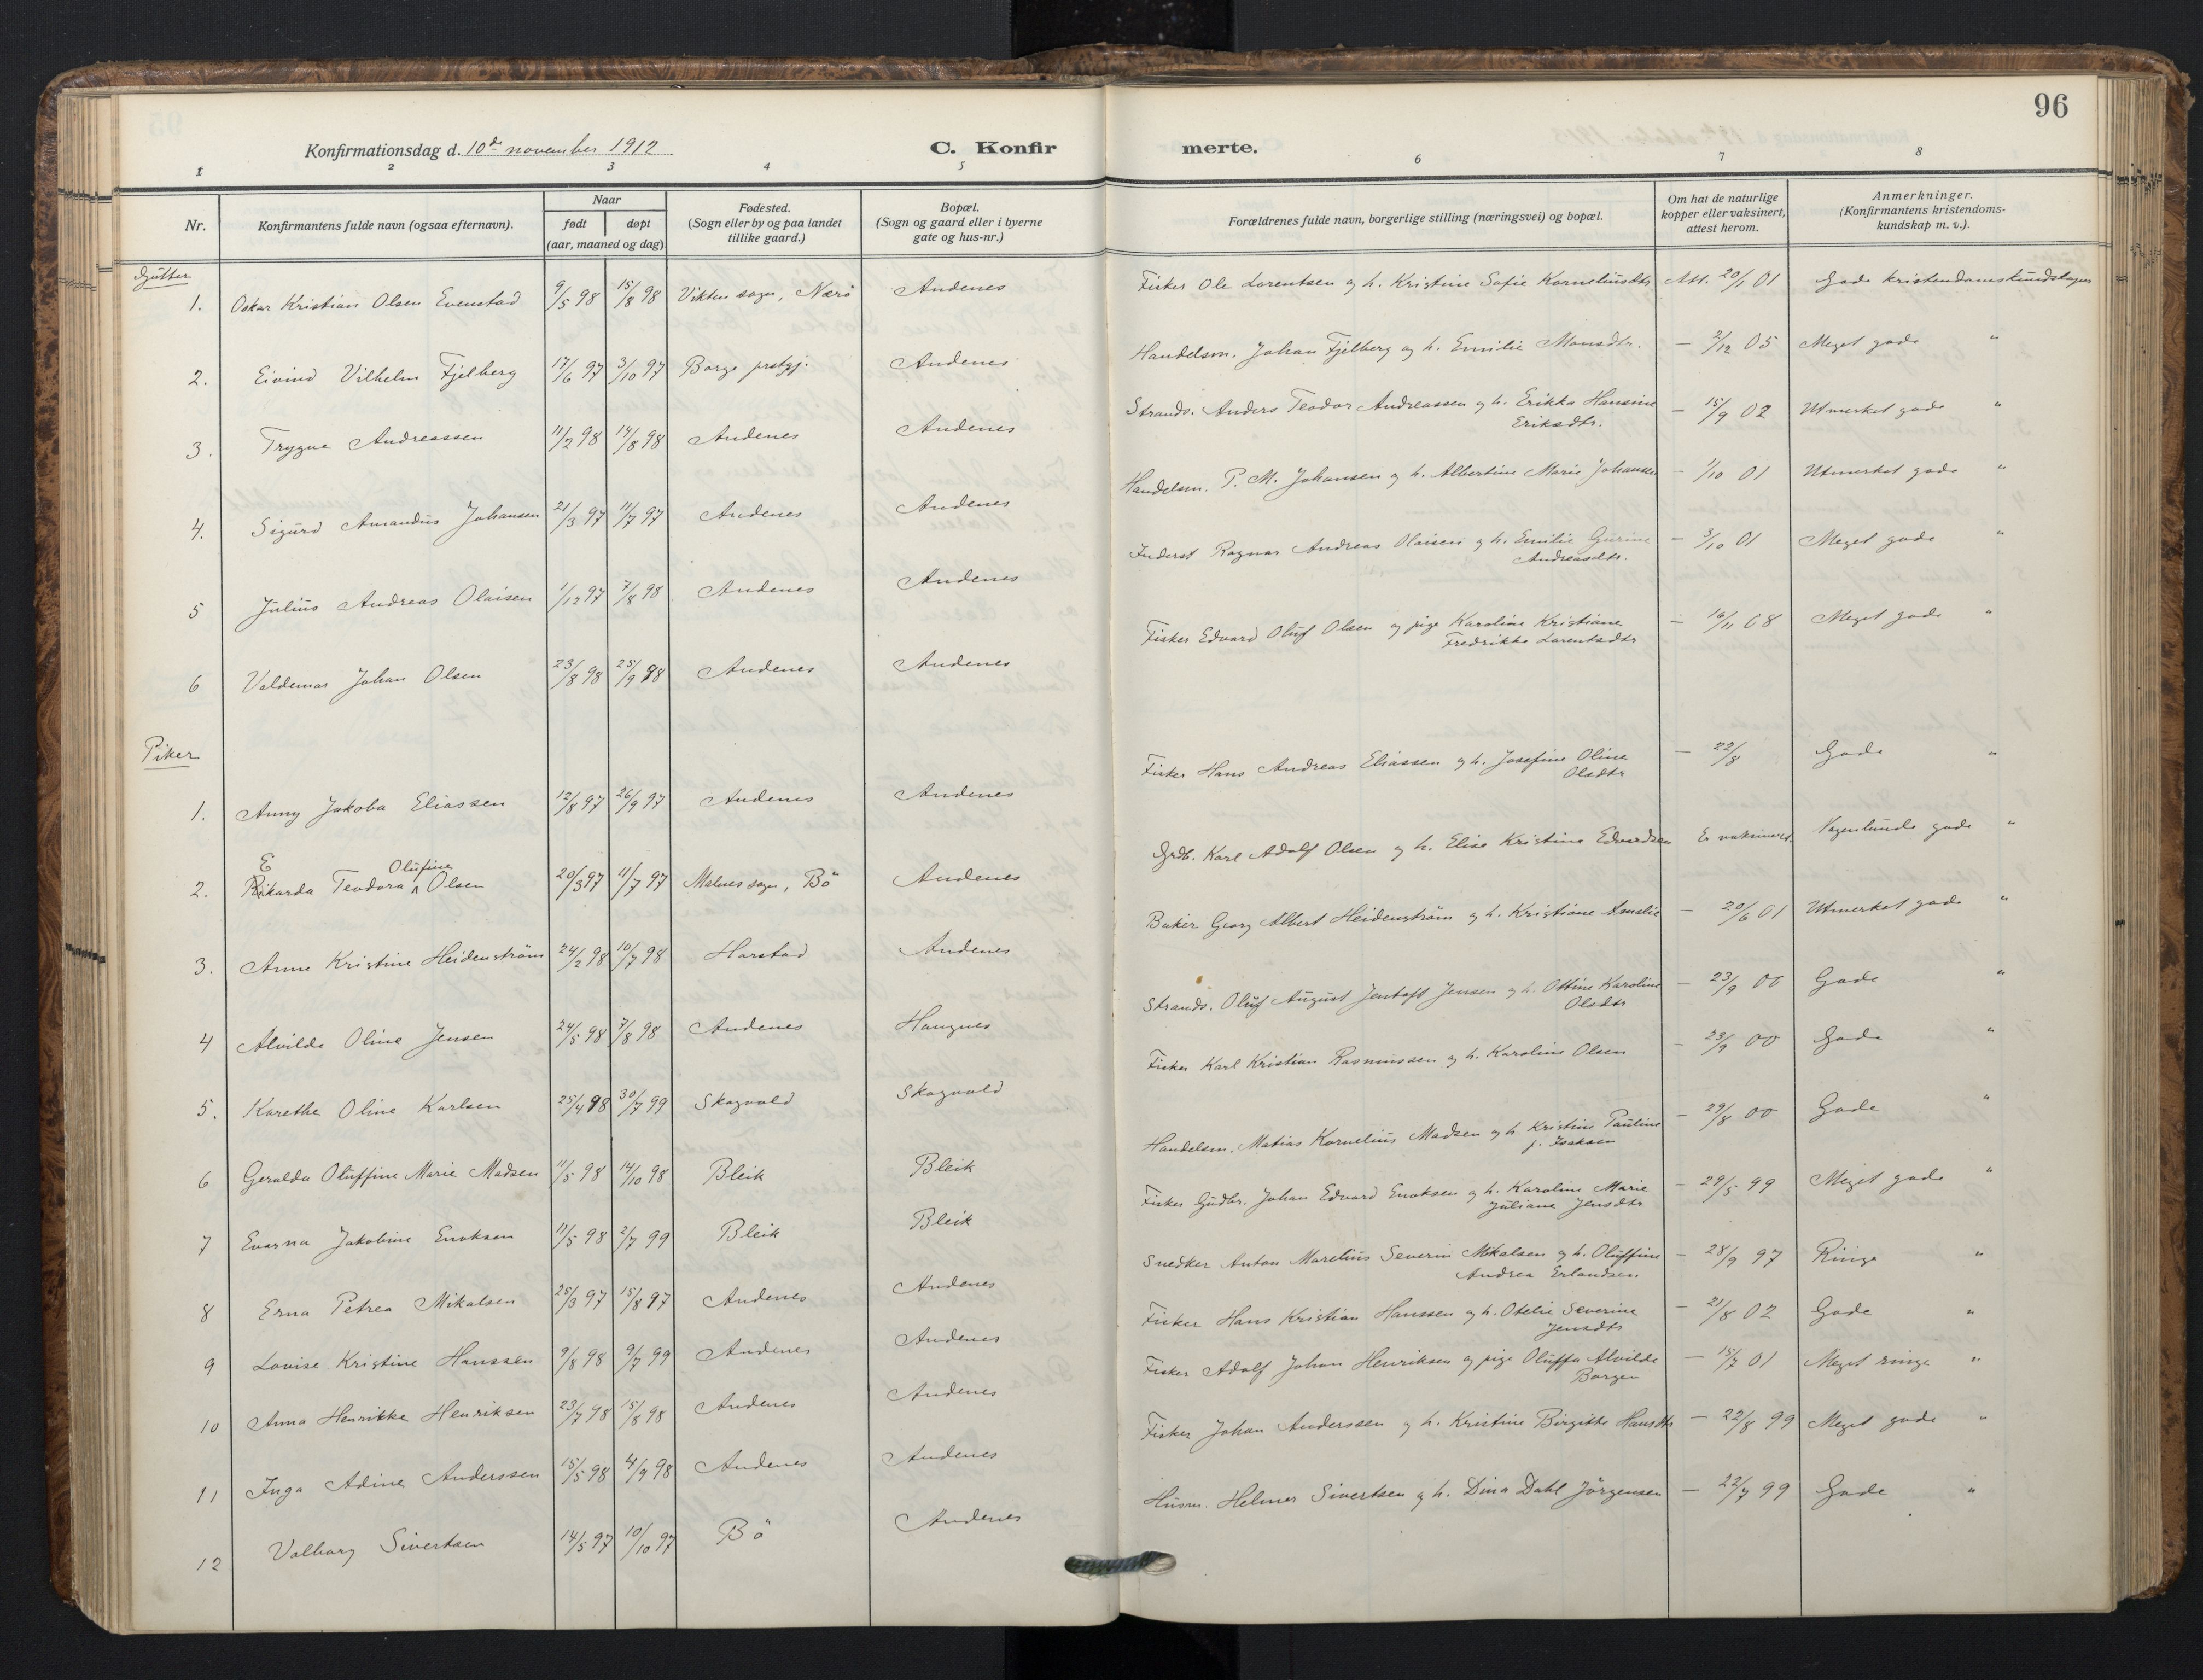 96
Konfirmationsdag d. 10de november 1912
C. Konfir
merte.
1 2 3 4 5 6 7 8
Nr.
Konfirmantens fulde navn (ogsaa efternavn).
Naar
født døpt
(aar, maaned og dag)
Fødested.
(Sogn eller by og paa landet
tillike gaard.)
Bopæl.
(Sogn og gaard eller i byerne
gate og hus-nr.)
Forældrenes fulde navn, borgerlige stilling (næringsvei) og bopæl.
Om hat de naturlige
kopper eller vaksinert,
attest herom.
Anmerkninger.
(Konfirmantens kristendoms-
kundskap m. v.).
Gutter
1. Oskar Kristian Olsen Evenstad 9/5 98 15/8 98 Vikten sogn, Nærö Andenes Fisker Ole Lorentsen og h. Kristine Sofie Korneliusdtr Att. 20/1 01 Gode kristendomskundskaper
2. Eivind Vilhelm Fjelberg 17/6 97 3/10 97 Borge prstgj. Andenes Handelsm. Johan Fjelberg og h. Emilie Monsdtr. — 2/12 05 Meget gode "
3. Trygve Andreassen 11/2 98 14/8 98 Andenes Andenes Strands. Anders Teodor Andreassen og h. Erikka Hansine
Eriksdtr. — 15/9 02 Utmerket gode "
4. Sigurd Amandus Johansen 21/3 97 11/7 97 Andenes Andenes Handelsm. P. M. Johansen og h. Albertine Marie Johansen — 1/10 01 Utmerket gode "
5 Julius Andreas Olaisen 1/12 97 7/8 98 Andenes Andenes Inderst Ragnar Andreas Olaisen og h. Emilie Gurine
Andreasdtr. — 3/10 01 Meget gode "
6 Valdemar Johan Olsen 23/8 98 25/9 98 Andenes Andenes Fisker Edvard Oluf Olsen og pige Karoline Kristiane
Fredrikke Lorentsdtr — 16/11 08 Meget gode "
Piker
1. Anny Jakoba Eliassen 12/8 97 26/9 97 Andenes Andenes Fisker Hans Andreas Eliassen og h. Josefine Oline
Olsdtr — 22/8 Gode "
E Olufine
2. Rikarda Teodora ^ Olsen 20/3 97 11/7 97 Malnes sogn, Bö Andenes Grdb. Karl Adolf Olsen og h. Elise Kristine Edvardsen Er vaksinert. Nogenlunde gode "
3. Anne Kristine Heidenström 24/2 98 10/7 98 Harstad Andenes Baker Georg Albert Heidenström og h. Kristiane Amalie — 20/6 01 Utmerket gode "
4 Alvilde Oline Jensen 24/5 98 7/8 98 Andenes Haugnes Strands. Oluf August Jentoft Jensen og h. Ottine Karoline
Olsdtr — 23/9 00 Gode "
5. Karethe Oline Karlsen 25/4 98 30/7 99 Skogvold Skogvold Fisker Karl Kristian Rasmussen og h. Karoline Olsen — 23/9 00 Gode "
6 Geralda Oluffine Marie Madsen 11/5 98 14/10 98 Bleik Bleik Handelsm. Matias Kornelius Madsen og h. Kristine Pauline
f. Isaksen — 29/8 00 Gode "
7 Evarna Jakobine Enoksen 11/5 98 2/7 99 Bleik Bleik Fisker Gudbr. Johan Edvard Enoksen og h. Karoline Marie
Juliane Jensdtr — 29/5 99 Meget gode "
8 Erna Petrea Mikalsen 25/3 97 15/8 97 Andenes Andenes Snedker Anton Marelius Severin Mikalsen og h. Oluffine
Andrea Erlandsen — 28/9 97 Ringe "
9 Lovise Kristine Hanssen 9/8 98 9/7 99 Andenes Andenes Fisker Hans Kristian Hanssen og h. Otelie Severine
Jensdtr — 21/8 02 Gode "
10 Anna Henrikke Henriksen 23/7 98 15/8 98 Andenes Andenes Fisker Adolf Johan Henriksen og pige Oluffa Alvilde
Borgen — 15/7 01 Meget ringe "
11 Inga Adine Anderssen 15/5 98 4/9 98 Andenes Andenes Fisker Johan Anderssen og h. Kristine Birgitte Hansdtr — 22/8 99 Meget gode "
12 Valborg Sivertsen 14/5 97 10/10 97 Bö Andenes Husm. Helmer Sivertsen og h. Dina Dahl Jörgensen — 22/7 99 Gode "